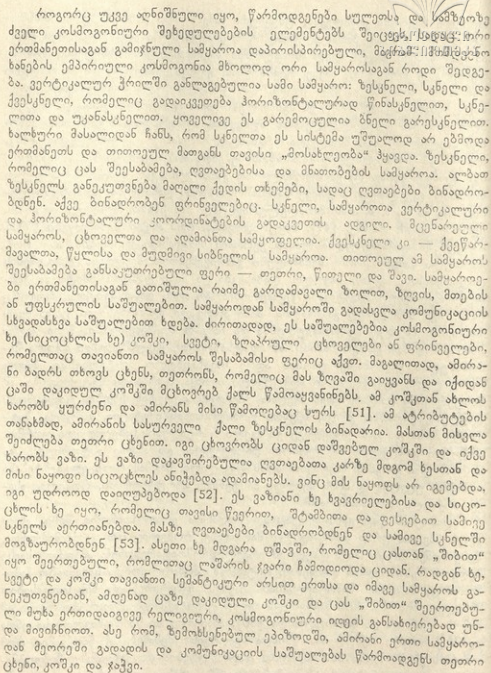 როგორც უკვე აღნიშნული იყო, წარმოდგენები სულეთსა და სამზეოზე
ძველი კოსმოგონიური შეხედულებების ელემენტებს შეიცავს, სადაც ორი
ერთმანეთისაგან გამიჯნული სამყაროა დაპირისპირებული, მაგრამ
ხანების ემპირიული კოსმოგონია მხოლოდ ორი სამყაროსაგან როდი შედგე-
ბა. ვერტიკალურ ჭრილში განლაგებულია სამი სამყარო: ზესკნელი, სკნელი და
ქვესკნელი, რომელიც გადაიკვეთება ჰორიზონტალურად წინასკნელით, სკნე-
ლითა და უკანასკნელით. ყოველივე ეს გარემოცულია ბნელი გარესკნელით.
ხალხური მასალიდან ჩანს, რომ სკნელთა ეს სისტემა უშუალოდ არ ებმოდა
ერთმანეთს და თითოეულ მათგანს თავისი „მოსახლეობა“ ჰყავდა. ზესკნელი,
რომელიც ცას შეესაბამება, ღვთაებებისა და მნათობების სამყაროა. ალბათ
ზესკნელს განეკუთვნება მაღალი ქედის თხემები, სადაც ღვთაებები ბინადრო-
ბდნენ. აქვე ბინადრობენ ფრინველებიც. სკნელი, სამყაროთა ვერტიკალური
და ჰორიზონტალური კოორდინატების გადაკვეთის ადგილი, მცენარეული
სამყაროს, ცხოველთა და ადამიანთა სამყოფელია. ქვესკნელი კი — ქვეწარ-
მავალთა, წყლისა და მუდმივი სიბნელის სამყაროა. თითოეულ ამ სამყაროს
შეესაბამება განსაკუთრებული ფერი — თეთრი, წითელი და შავი. სამყაროე-
ბი ერთმანეთისაგან გათიშულია რაიმე გარდამავალი ზოლით, ზღვის, მთების
ან უფსკრულის საშუალებით. სამყაროდან სამყაროში გადასვლა კომუნიკაციის
სხვადასხვა საშუალებით ხდება. ძირითადად, ეს საშუალებებია კოსმოგონიური
ხე (სიცოცხლის ხე) კოშკი, სვეტი, ზღაპრული ცხოველები ან ფრინველები,
რომელთაც თავიანთი სამყაროს შესაბამისი ფერიც აქვთ. მაგალითად, ამირა-
ნი ბადრს თხოვს ცხენს, თეთრონს, რომელიც მას ზღვაში გაიყვანს და იქიდან
ცაში დაკიდულ კოშკში მცხოვრებ ქალს წამოაყვანინებს. ამ კოშკთან ახლოს
ხარობს ყურძენი და ამირანს მისი წამოღებაც სურს [51]. ამ ატრიბუტების
თანახმად, ამირანის სასურველი ქალი ზესკნელის ბინადარია. მასთან მისვლა
შეიძლება თეთრი ცხენით. იგი ცხოვრობს ციდან დაშვებულ კოშკში და იქვე
ხარობს ვაზი. ეს ვაზი დაკავშირებულია ღვთაებათა კარზე მდგომ ხესთან და
მისი ნაყოფი სიცოცხლეს ანიჭებდა ადამიანებს. ვინც მის ნაყოფს არ იგემებდა,
იგი უდროოდ დაიღუპებოდა [52]. ეს ვაზიანი ხე ხვავრიელებისა და სიცო-
ცხლის ხე იყო, რომელიც თავისი წვერით, შტამბითა და ფესვებით სამივე
სკნელს აერთიანებდა. მასზე ღვთაებები ბინადრობდნენ და სამივე სკნელში
მოგზაურობდნენ [53]. ასეთი ხე მდგარა ფშავში, რომელიც ცასთან „შიბით“
იყო შეერთებული, რომლითაც ლაშარის ჯვარი ჩამოდიოდა ციდან. რადგან ხე,
სვეტი და კოშკი თავიანთი სემანტიკური არსით ერთსა და იმავე სამყაროს გა-
ნეკუთვნებიან, ამდენად ცაზე დაკიდული კოშკი და ცას „შიბით“ შეერთებუ-
ლი მუხა ერთიდაიგივე რელიგიური, კოსმოგონიური იდეის განსახიერებად უნ-
და მივიჩნიოთ. ასე რომ, ზემოხსენებულ ეპიზოდში, ამირანი ერთი სამყარო-
დან მეორეში გადადის და კომუნიკაციის საშუალებას წარმოადგენს თეთრი
ცხენი, კოშკი და ჯაჭვი.